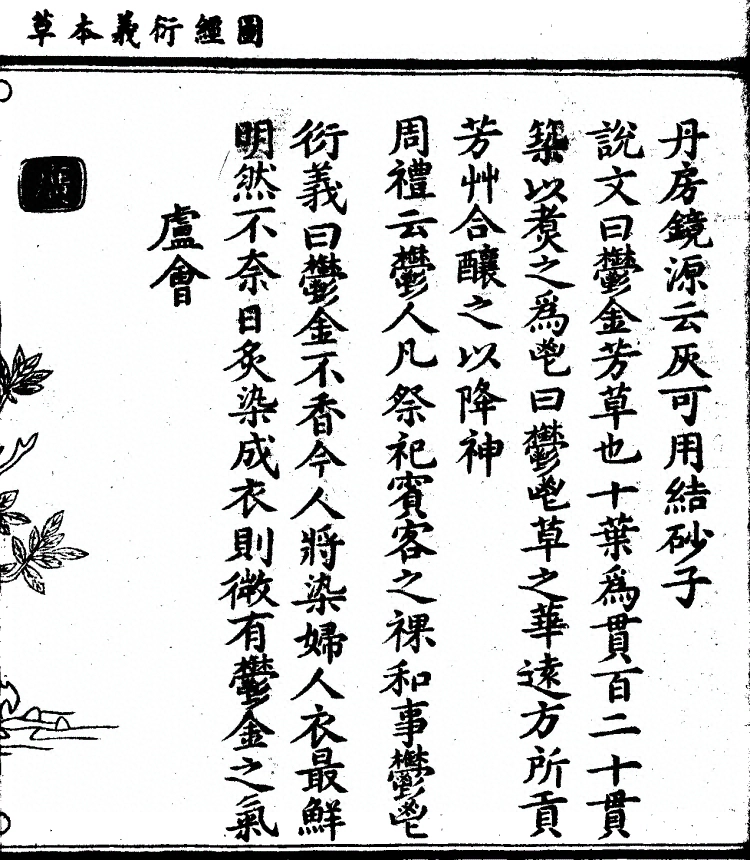 圖經衍義本草
丹房鏡源云灰可用結砂子
說文曰鬱金芳草也十葉爲貫百二十貫
築以煑之爲鬯曰鬱鬯草之華遠方所貢
芳艸合釀之以降神
周禮云鬱人凡祭祀賓客之祼和事鬱鬯
衍義曰鬱金不香今人將染婦人衣最鮮
明然不奈日炙染成衣則微有鬱金之氣
盧會